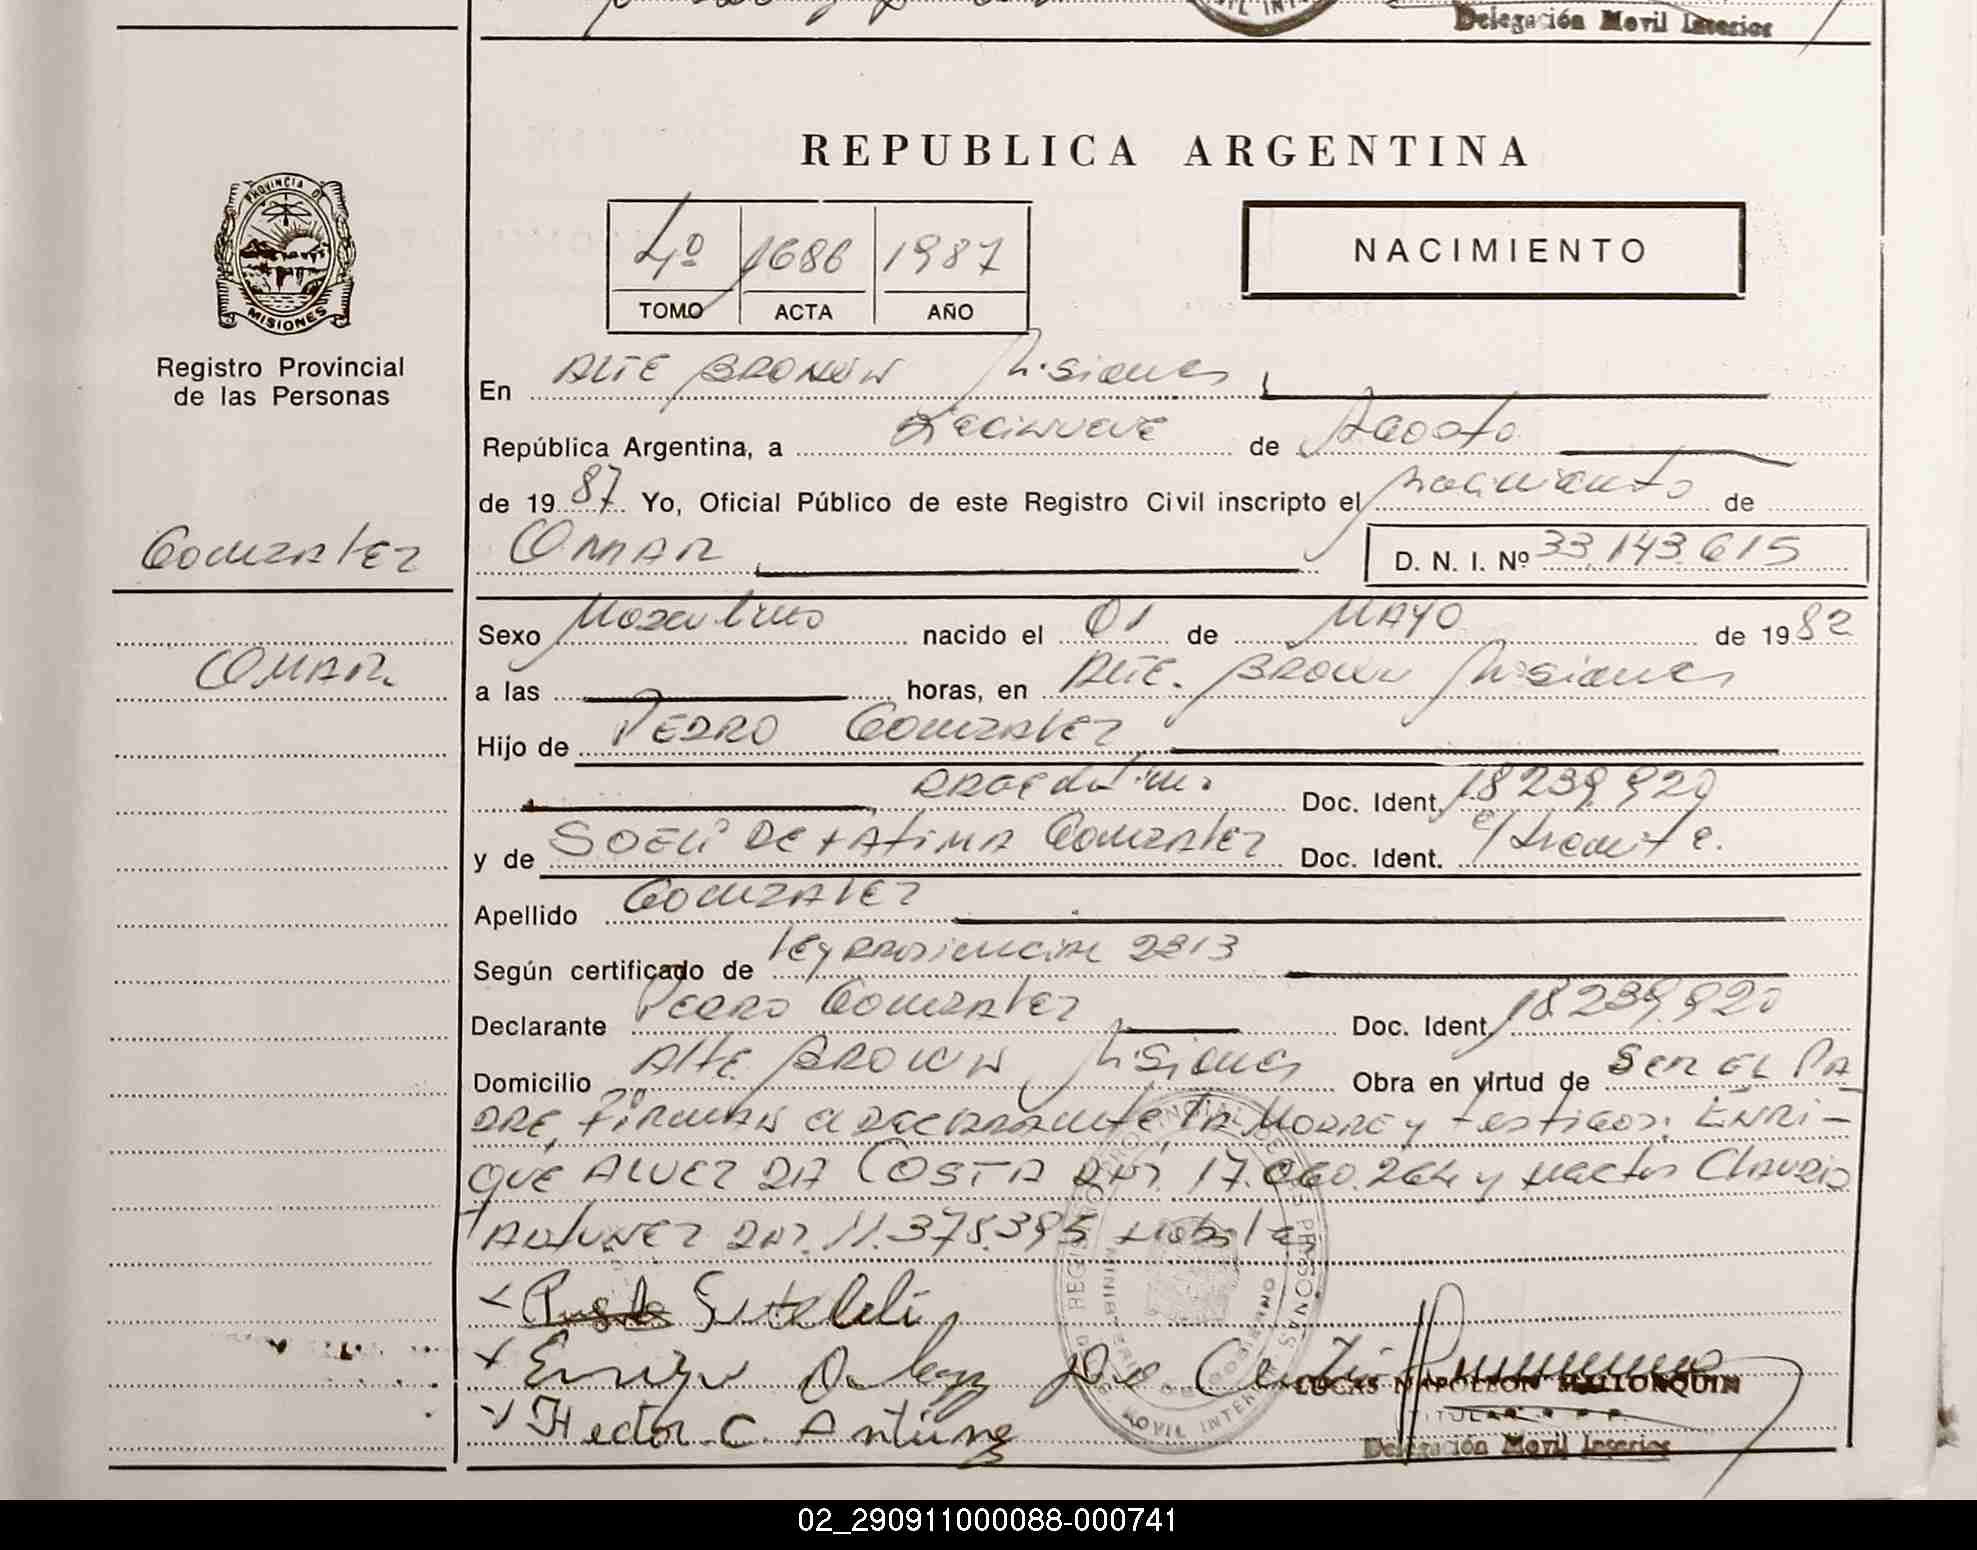 Delegación Movil Interior
REPUBLICA ARGENTINA
PROVINCIA DE
MISIONES
4º 1686 1987
TOMO ACTA AÑO
NACIMIENTO
Registro Provincial
de las Personas
En ALTE BROWN Misiones
República Argentina, a Diecinueve de Agosto
de 1987 Yo, Oficial Público de este Registro Civil inscripto el nacimiento de
GONZALEZ
OMAR D. N. I. Nº 33.143.615
Sexo Masculino nacido el 01 de MAYO de 1982
OMAR
a las horas, en ALTE. BROWN Misiones
Hijo de PEDRO GONZALEZ
Argentino Doc. Ident. 18.239.920
y de SOELI DE FATIMA GONZALEZ Doc. Ident.
Apellido GONZALEZ
Según certificado de Ley Provincial 2313
Declarante PEDRO GONZALEZ Doc. Ident. 18.239.920
Domicilio ALTE BROWN Misiones Obra en virtud de SER EL PA
DRE, Firman el declarante LA MADRE y testigos: ENRI-
QUE ALVEZ DA COSTA DNI. 17.060.264 y Hector CLAUDIO
ANTUNEZ DNI. 11.378.395
Enrique
LUCAS NAPOLEON MALLORQUIN
TITULAR
Hector C. Antunez
Delegación Movil Interior
02_290911000088-000741